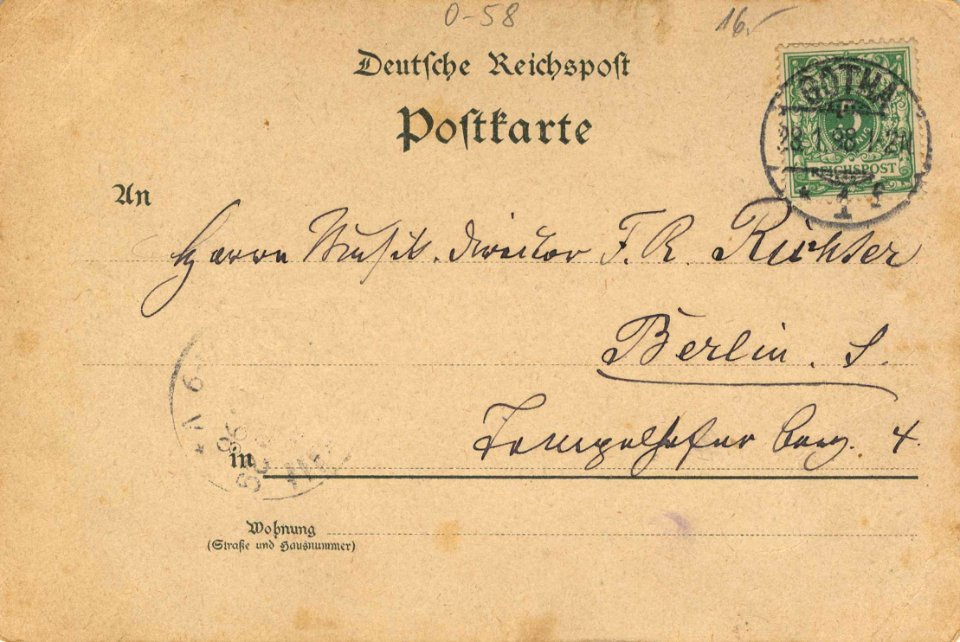 0-58
16.-
Deutsche Reichspost
Postkarte
GOTHA
28.1.98.
REICHSPOST
1
An
Herrn Musik-director F. R. Richter
Berlin. S.
Tempelhofer Berg. 4.
in
Wohnung
(Straße und Hausnummer)